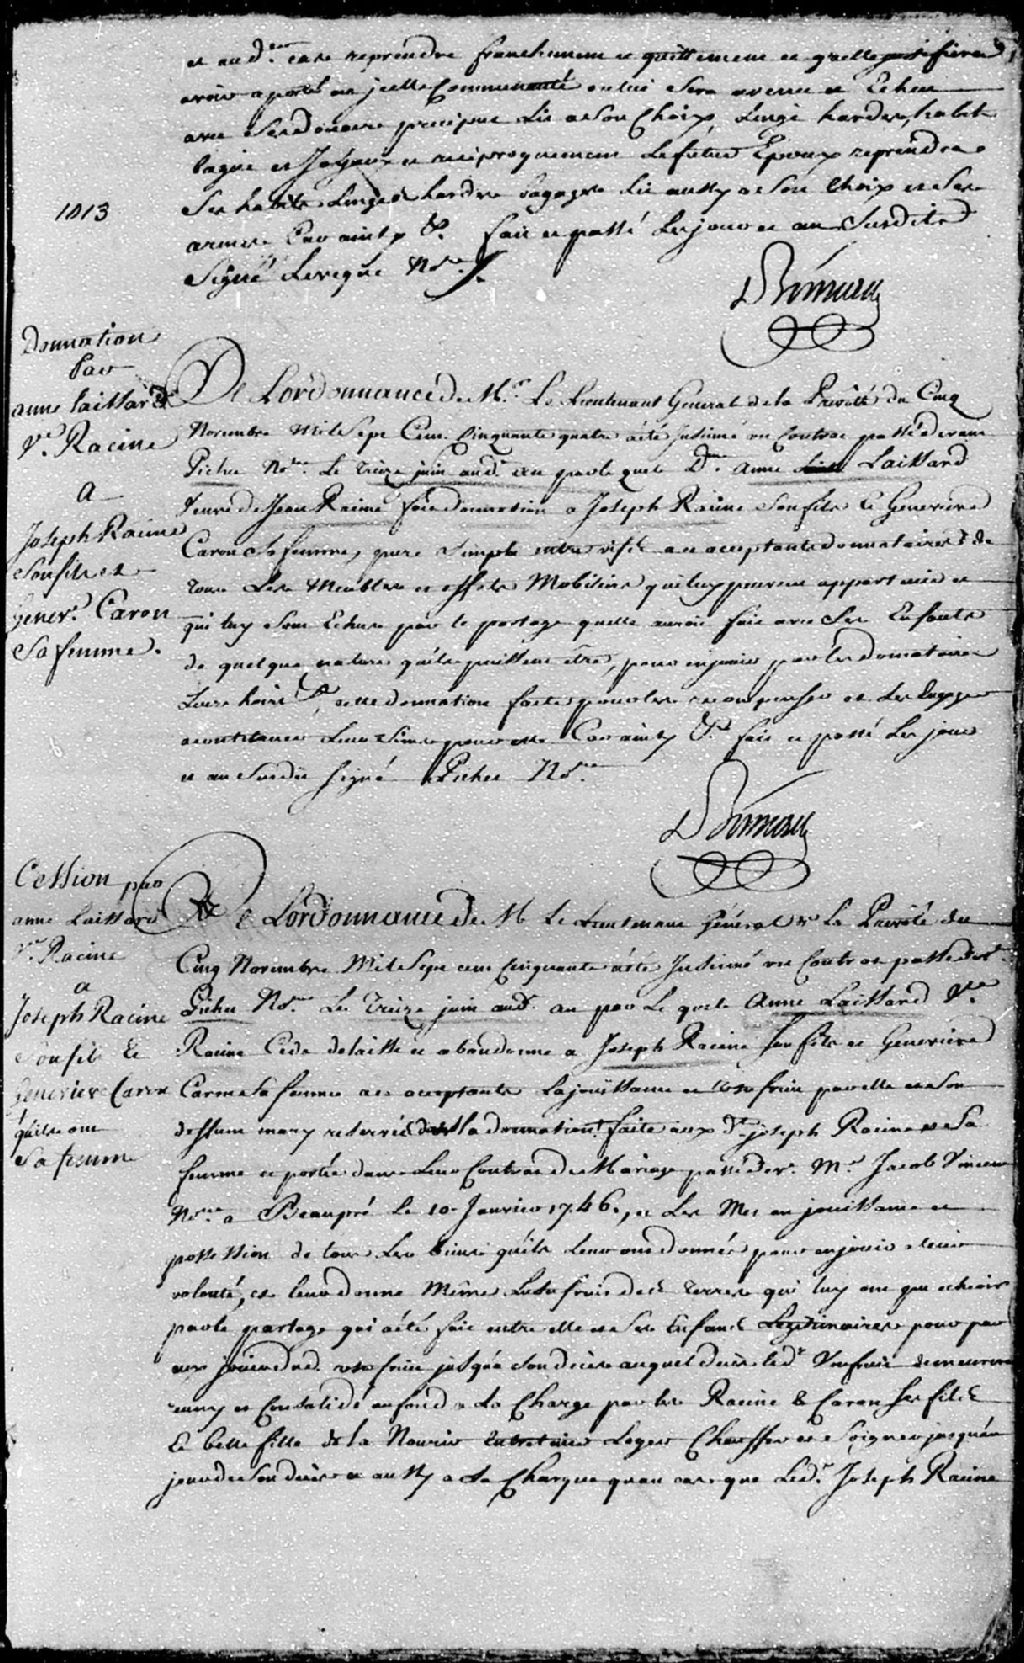 et aud. cas reprendre franchement et quittement ce quelle
avoir aporté en jcelle Communauté ou lui sera avenu et Echeu
avec son doüaire preciput Lit a Son Choix, Linge hardes, habits
bague et Joyaux et reciproquement Le futur Epoux reprendra
Ses habits Linge & hardes bagages Lit aussy a Son Choix et Ses
armes Car ainsy &c. fait et passé Les jour et an Susdits
Signé Leveque Nore
1013
Donnation
Par
anne Laissard
Ve. Racine
A
Joseph Racine
Son fils et
Genev. Caron
Sa femme.
De Lordonnance de Mr. Le Lieutenant General de la Prevosté du Cinq
Novembre Mil Sept Cent Cinquante quatre a été Insinué un Contrat passé devant
Pichet Nore. Le treize juin aud. an par lequel De. Anne Laissard
Veuve de Jean Racine fait donnation a Joseph Racine Son fils & Genevieve
Caron Sa femme, pure Simple entre vifs a ce acceptants donnataires de
tous Les Meubles et effets Mobiliers qui luy peuvent appartenir et
qui luy Sont Echus par le partage quelle auroit fait avec Ses Enfants
de quelque nature quils puissent être, pour en jouir par les donnataires
Leurs hoirs &c, cette donnation faite pour les recompenser et Les Engager
a continuer Leurs Soins pour elle Car ainsy &c. fait et passé Les jour
et an Susdit Signé Pichet Nore.
Cession par
anne Laissard
Ve. Racine
a
Joseph Racine
Son fils &
Genevieve Caron
Sa femme
De Lordonnance de M. Le Lieutenant Général de La Prevoté du
Cinq Novembre Mil Sept cent Cinquante a été Insinué un Contrat passé devt.
Pichet Nore. Le Treize juin aud. an par Lequel Anne Laissard Ve.
Racine Cede delaisse et abandonne a Joseph Racine Son fils et Genevieve
Caron Sa femme a ce acceptants La joüissance et Usufruit par elle et Son
deffunt mary reservés dans la donnation faite aux d. joseph Racine et Sa
femme et portée dans Leur Contrat de Mariage passé devt. Me. Jacob
Nore. a Beaupré le 10. Janvier 1746., et Les Met en jouissance et
possession de tous Les biens quils Leur ont donnés pour en jouir a leur
volonté, et leur donne Même Lusufruit des terres qui luy ont pu echoir
par le partage qui a été fait entre elle et Ses Enfants pour par
eux jouir dud. usufruit jusqua Son deces auquel deces led. Usufruit demeurera
reuny et Consolidé au fond a La Charge par les Racine & Caron Ses fils
& belle fille de la Nourir entretenir Loger Chauffer et Soigner jusquau
jour de Son deces et aussy a La Charge que Led. Joseph Racine